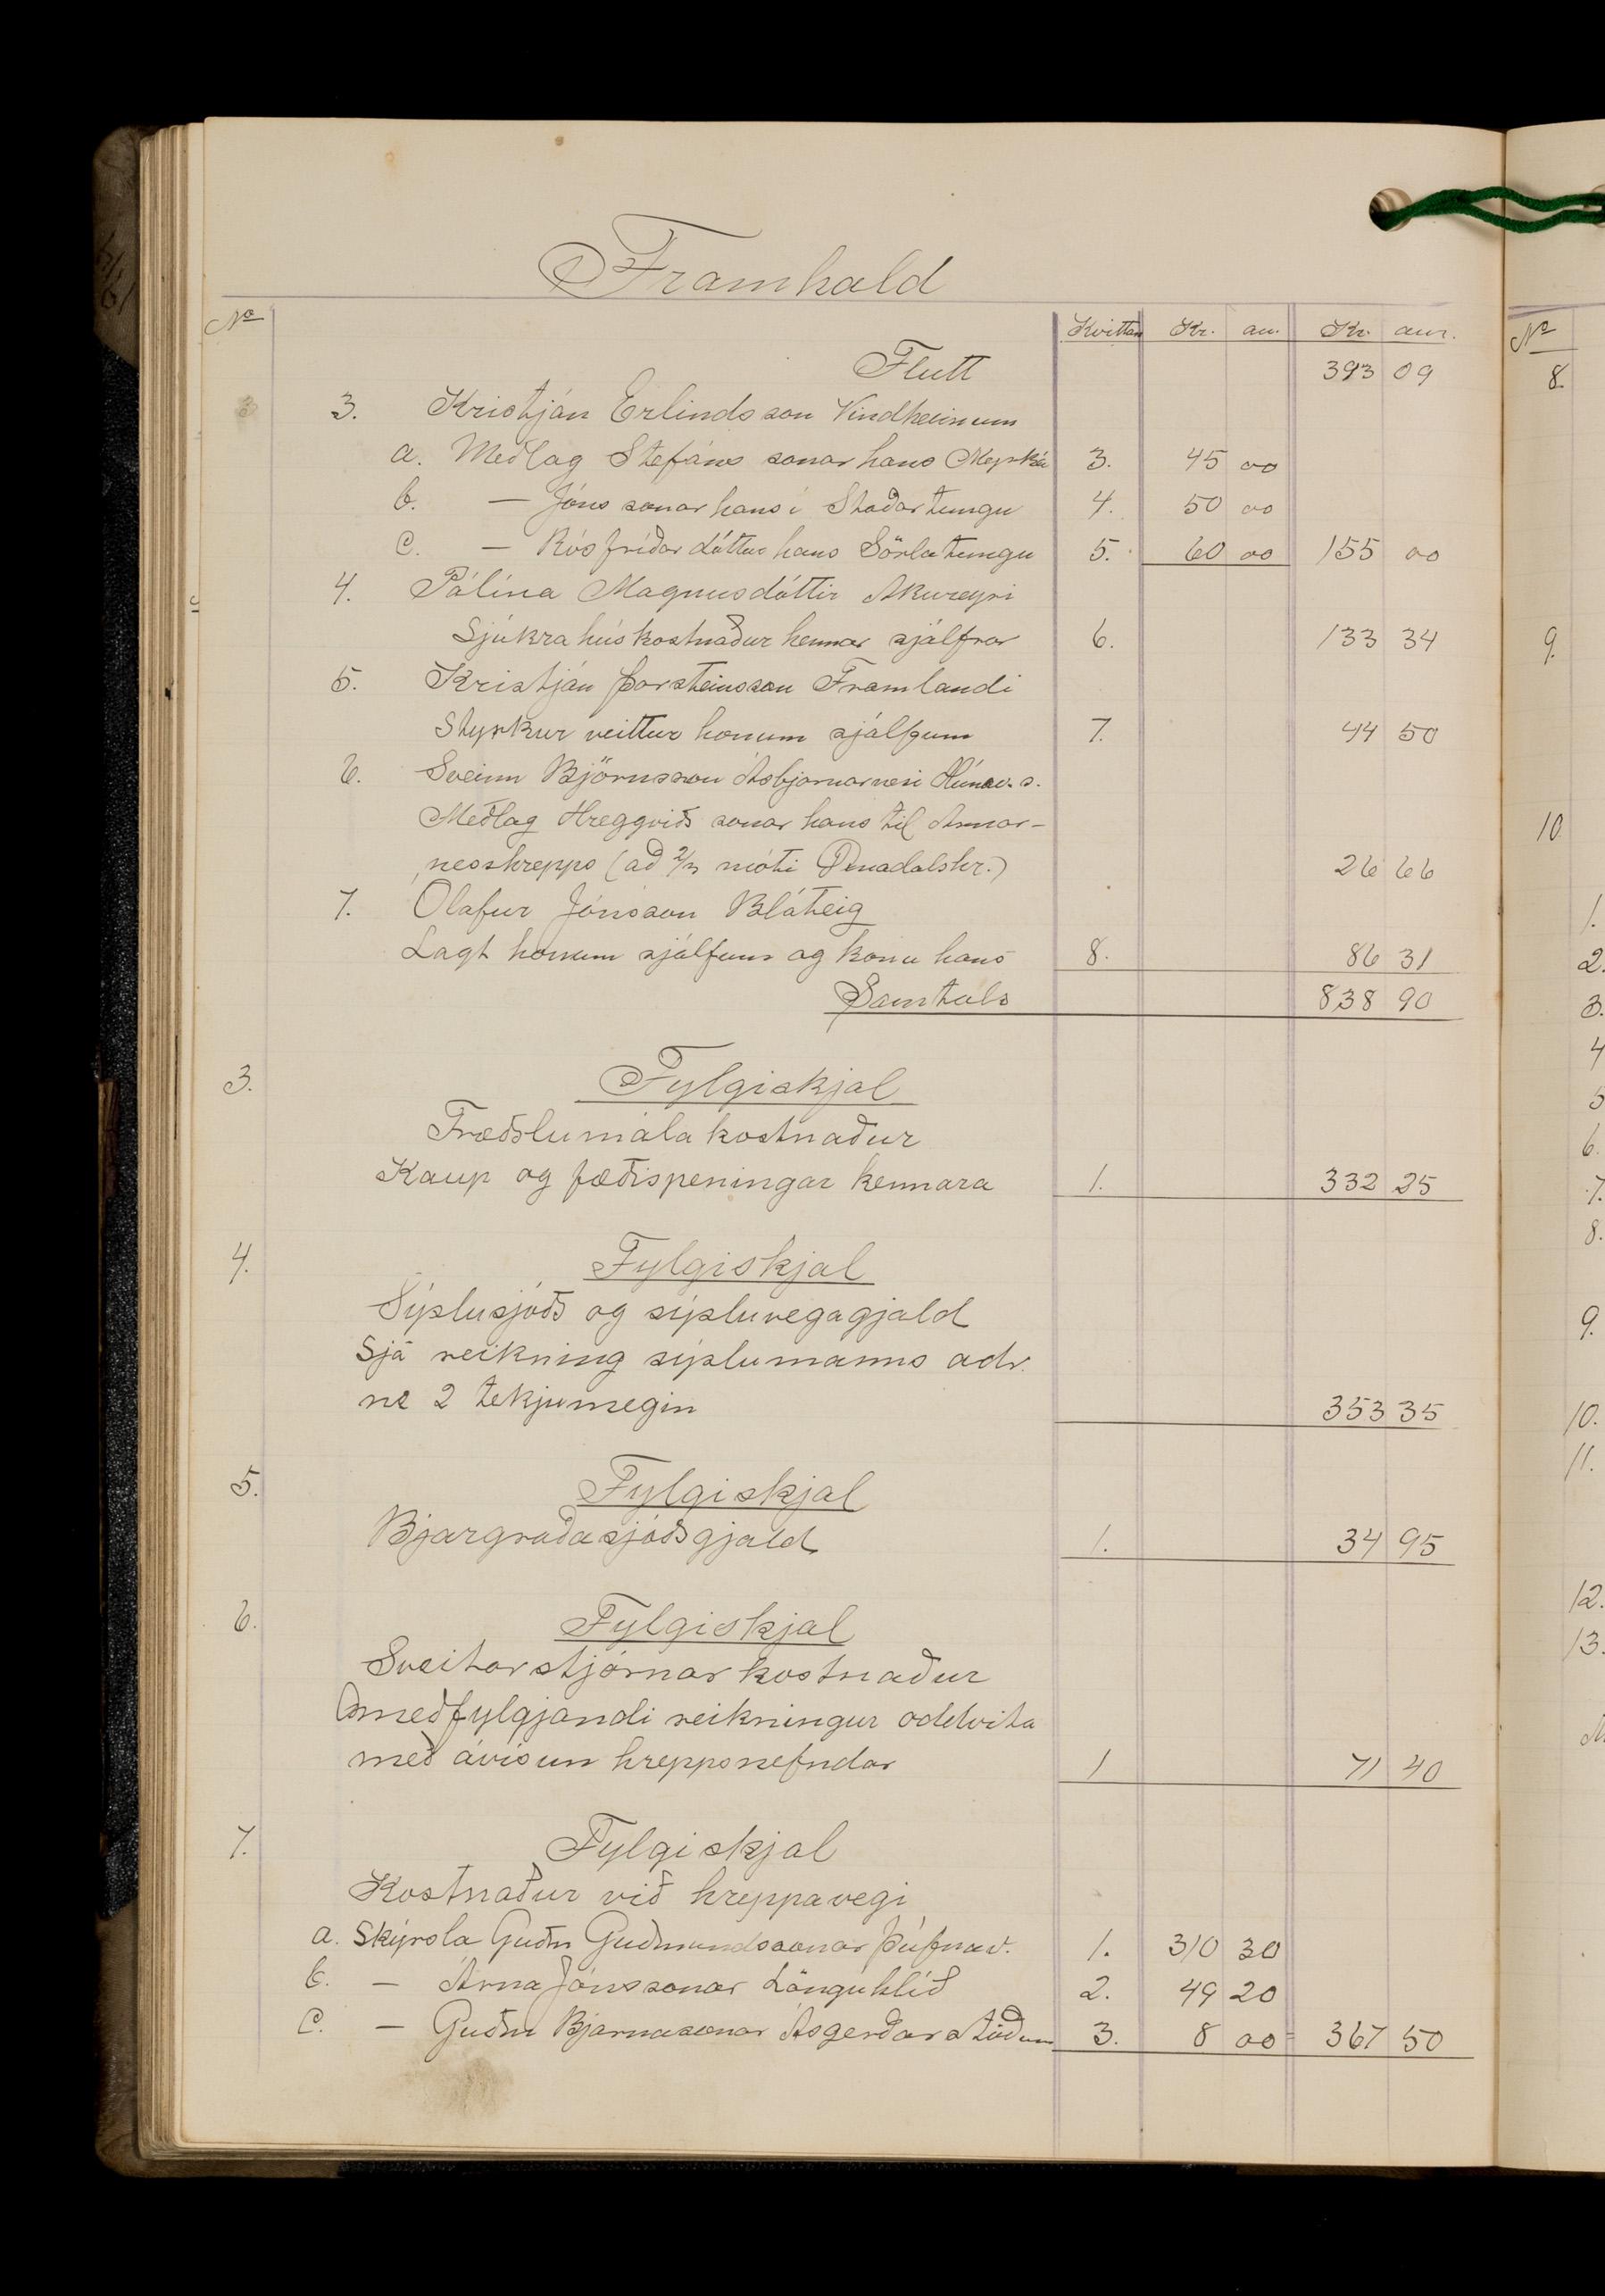 Framhald
No Kvittan Kr. au. Kr. aur.
Flutt 393 09
3. Kristján Erlindsson Vindheimum
a. Meðlag Stefáns sonar hans Myrká 3. 45 00
b. — Jóns sonar hans í Staðartungu 4. 50 00
c. — Rósfríðar dóttur hans Sörlatungu 5. 60 00 155 00
4. Pálína Magnusdóttir Akureyri
Sjúkrahúskostnaður hennar sjálfrar 6. 133 34
5. Kristján Þorsteinsson Framlandi
Styrkur veittur honum sjálfum 7. 44 50
6. Sveinn Björnsson Ásbjarnarnesi Húnav.s.
Meðlag Hreggviðs sonar hans til Arnar-
neshrepps (að 2/3 móti Öxnadalshr.) 26 66
7. Olafur Jónsson Bláteig
Lagt honum sjálfum og konu hans 8. 86 31
Samtals 838 90
3. Fylgiskjal
Fræðslumála kostnaður
Kaup og fæðispeningar kennara 1. 332 25
4. Fylgiskjal
Sýslusjóðs og sýsluvegagjald
Sjá reikning sýslumanns adr.
nr 2 tekjumegin 353 35
5. Fylgiskjal
Bjargráðasjóðsgjald 1. 34 95
6. Fylgiskjal
Sveitarstjórnar kostnaður
meðfylgjandi reikningur oddvita
með ávísun hreppsnefndar 1 71 40
7. Fylgiskjal
Kostnaður við hreppavegi
a. Skýrsla Guðm Guðmundssonar Þúfnav. 1. 310 30
b. — Árna Jónssonar Lönguhlíð 2. 49 20
c. — Guðm Bjarnasonar Ásgerðarstöðum 3. 8 00 367 50
No
8.
9.
10.
1.
2.
3.
4
5
6.
7.
8.
9.
10.
11.
12.
13.